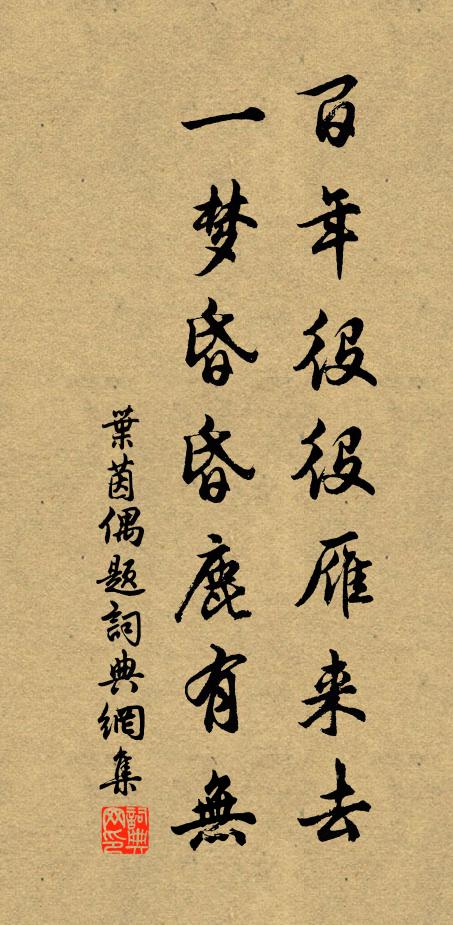 百年役役雁来去
一梦昏昏鹿有無
葉茵偶题詞典網集
詞典网印